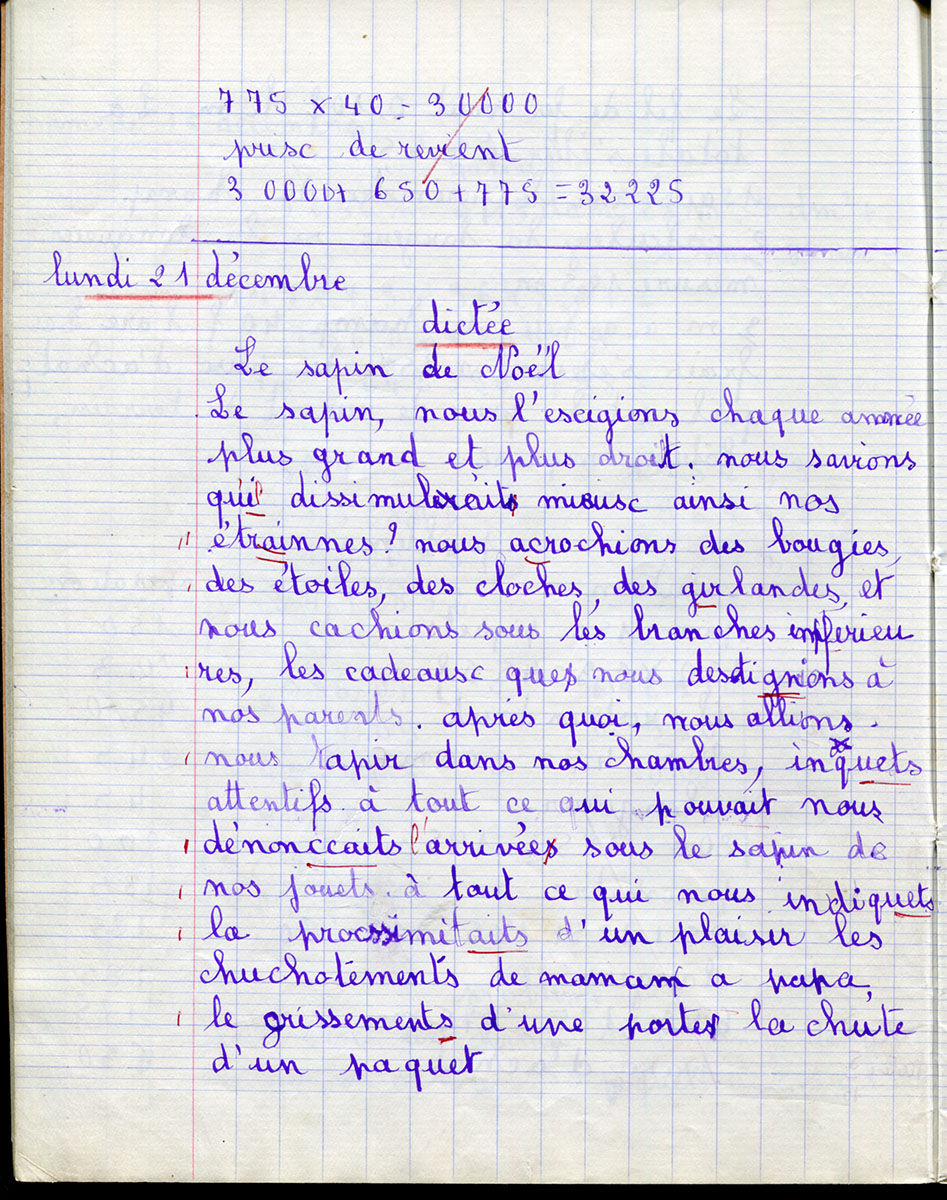 775 x 40 = 30000
prix de revient
3 0000+ 650 + 775 = 32225
lundi 21 décembre
dictée
Le sapin de Noël
Le sapin, nous l'escigions chaque année
plus grand et plus droit. nous savions
qu'il dissimulerait mieux ainsi nos
étrainnes? nous acrochions des bougies,
des étoiles, des cloches, des girlandes, et
nous cachions sous les branches inferieu
res, les cadeaux que nous destignions à
nos parents. après quoi, nous allions
nous tapir dans nos chambres, inquets
attentifs à tout ce qui pouvait nous
dénonccaits l'arrivée sous le sapin de
nos jouets. à tout ce qui nous indiquets
la procssimitaits d'un plaisir les
chuchotements de maman a papa,
le grissements d'une porte la chute
d'un paquet